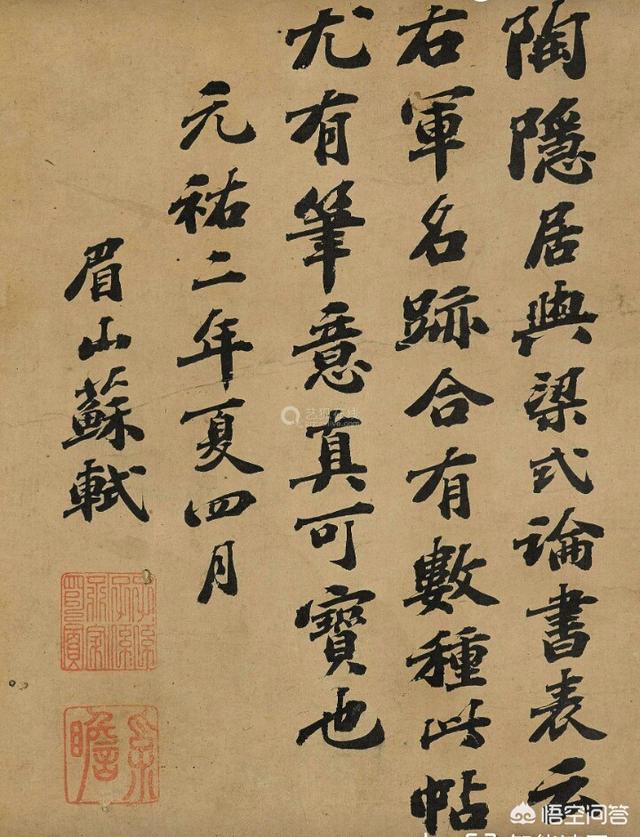 陶隱居與梁式論書表云
右軍名跡合有數種此帖
尤有筆意真可寶也
元祐二年夏四月
眉山蘇軾
悟空问答